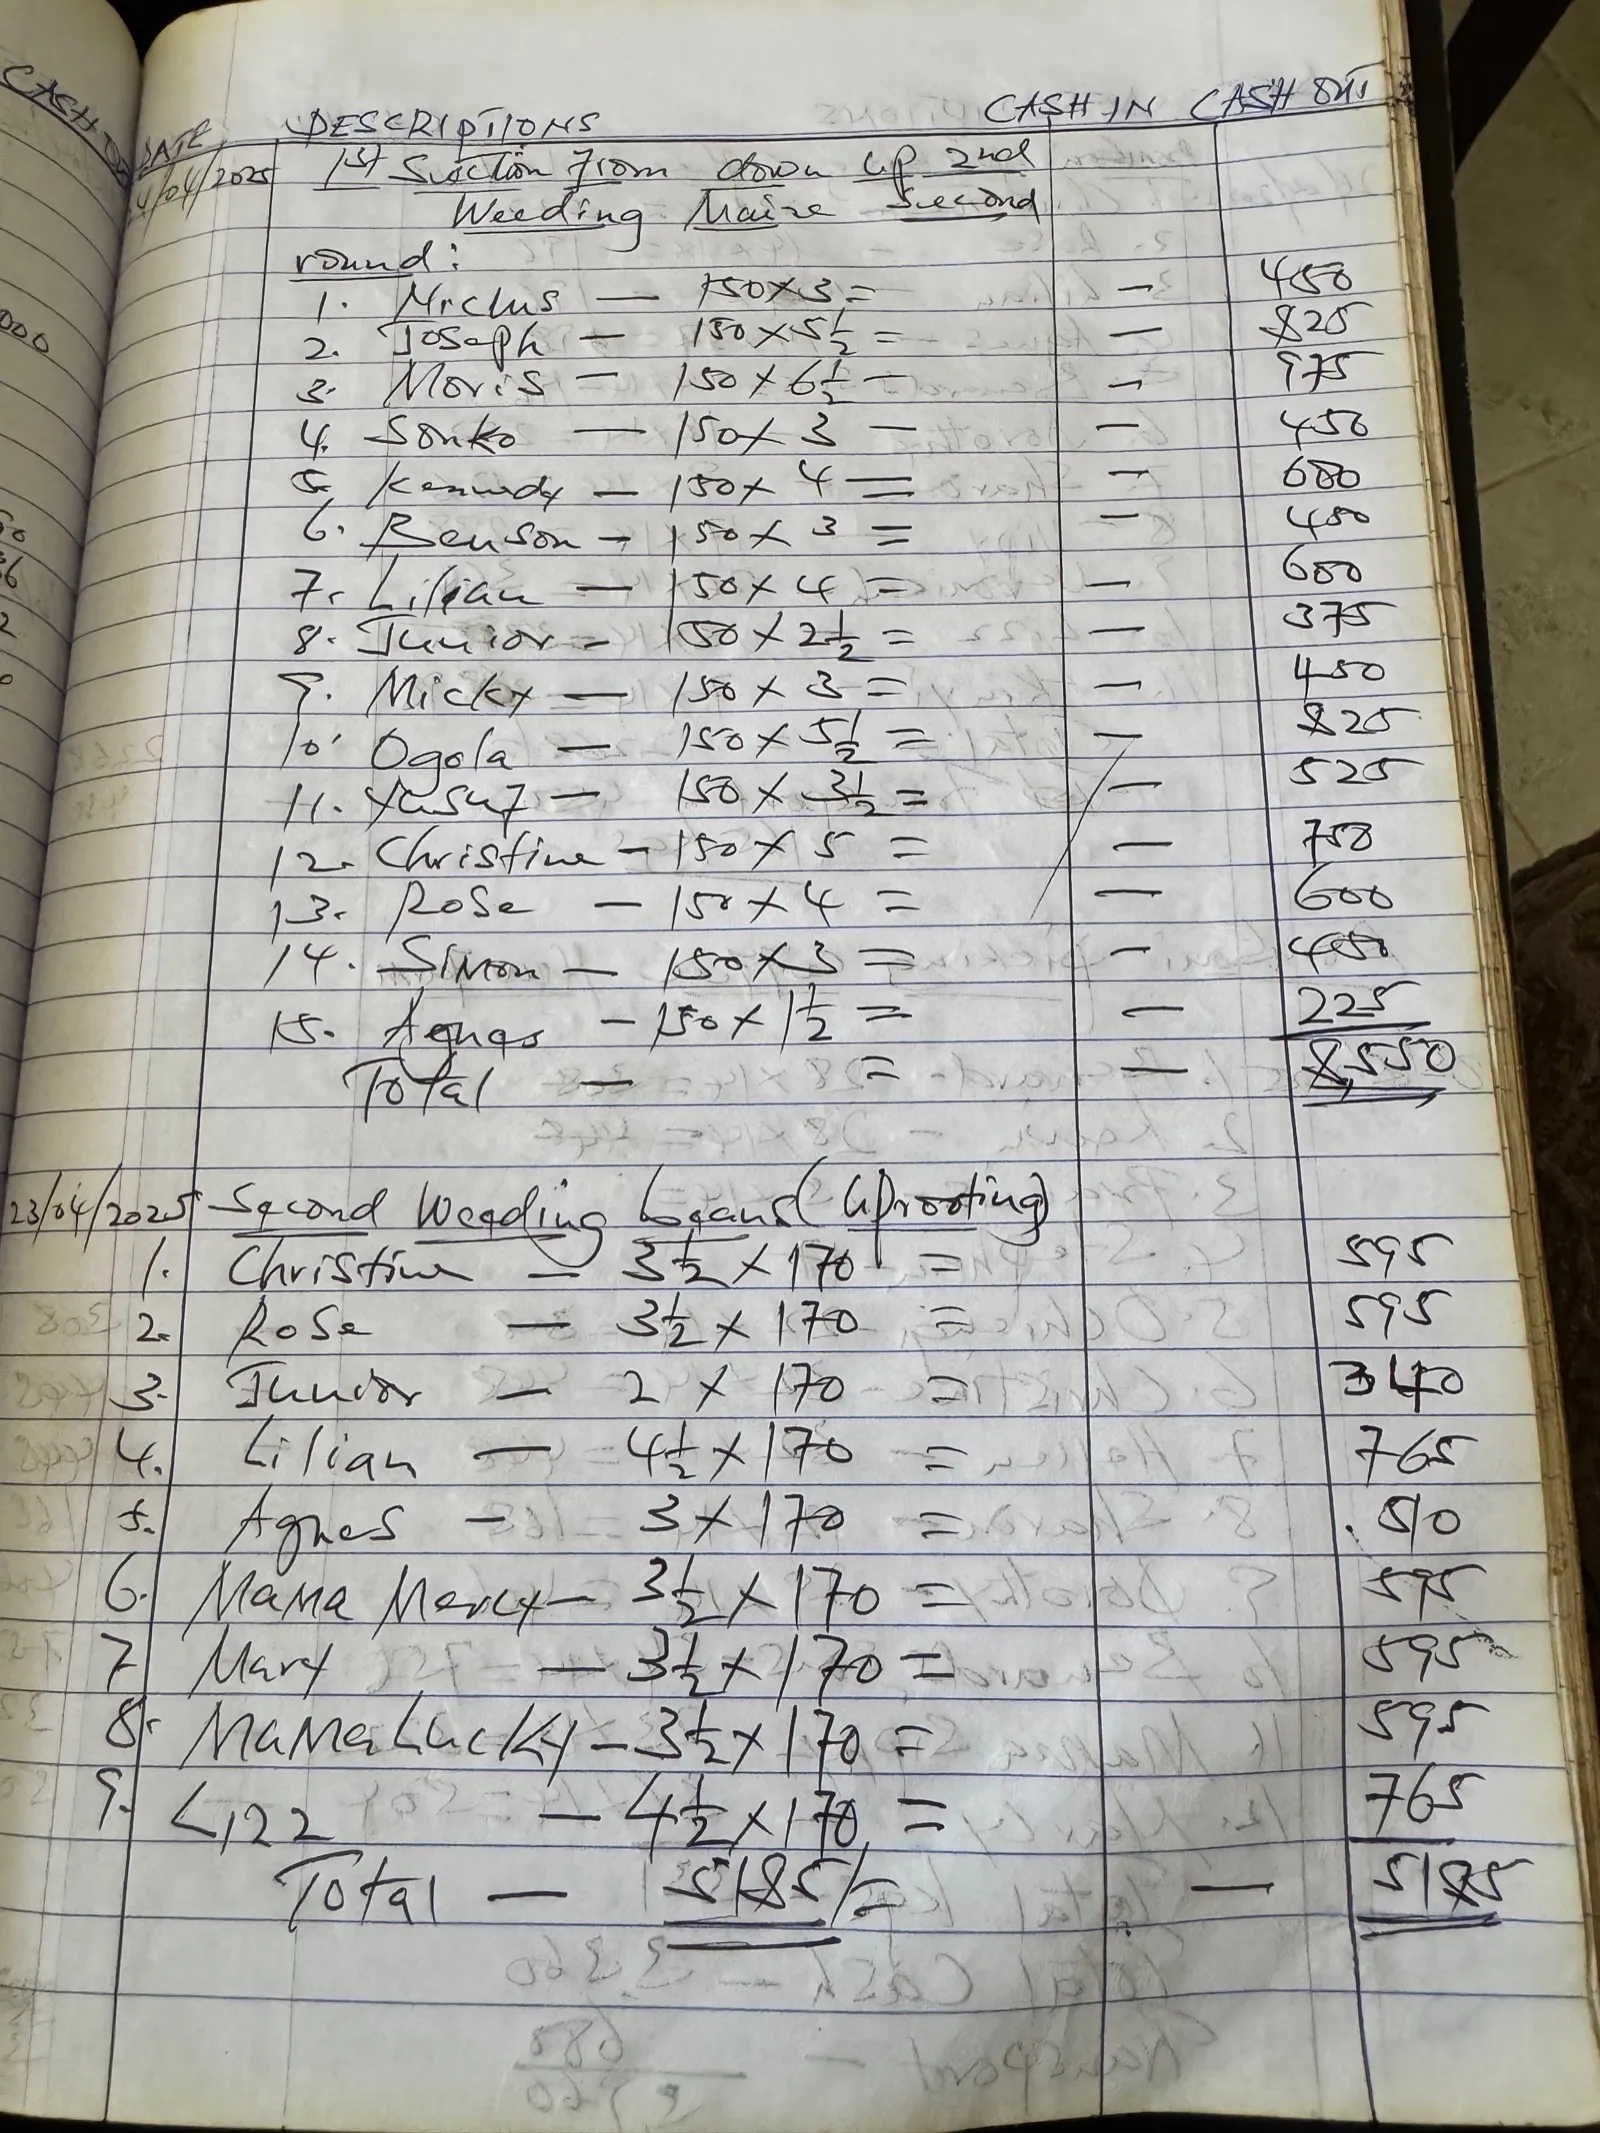 CASH OU
DATE DESCRIPTIONS CASH IN CASH OUT
4/04/2025 1st Suction From down up 2nd
Weeding Maize Second
round:
1. Miclus — 150×3= — 450
2. Joseph — 150×5½= — 825
3. Moris — 150×6½ — — 975
4. Sonko — 150×3 — — 450
5. Kennedy — 150×4 = — 600
6. Benson — 150×3 = — 450
7. Lilian — 150×4 = — 600
8. Junior — 150×2½= — 375
9. Micky — 150×3 = — 450
10. Ogola — 150×5½ = — 825
11. Yusuf — 150×3½= — 525
12. Christine — 150×5 = — 750
13. Rose — 150×4 = — 600
14. Simon — 150×3= — 450
15. Agnes — 150×1½= — 225
Total — = — 8,550
23/04/2025 Second Weeding beans (Uprooting)
1. Christine — 3½×170 = 595
2. Rose — 3½×170 = 595
3. Junior — 2×170 = 340
4. Lilian — 4½×170 = 765
5. Agnes — 3×170 = 510
6. MaMa Mercy — 3½×170 = 595
7 Mary — 3½×170= 595
8. MaMa Lucky — 3½×170= 595
9. Lizz — 4½×170 = 765
Total — 5185/= — 5185